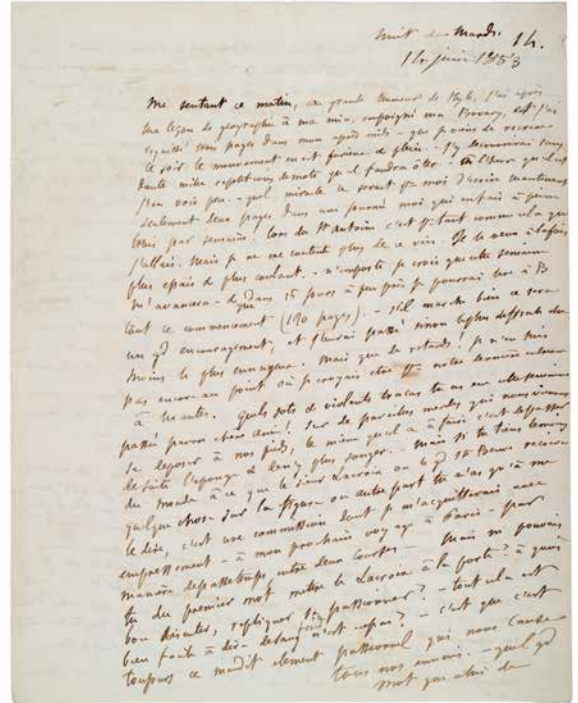 nuit de Mardi. 14.
14 juin 1853
Me sentant ce matin, en grande humeur de style, j'ai après
ma leçon de géographie à ma nièce, empoigné ma Bovary, et j'ai
esquissé trois pages dans mon après midi - que je viens de récrire
ce soir. le mouvement en est furieux et plein. j'y découvrirai sans
doute mille répétitions de mots qu'il faudra ôter. - à l'heure qu'il est
j'en vois peu. - quel miracle ce serait pr moi d'écrire maintenant
seulement deux pages dans une journée moi qui en fais à peine
trois par semaine. lors du St antoine c'est prtant comme cela que
j'allais. Mais je ne me contente plus de ce vin. Je le veux à la fois
plus épais et plus coulant. - n'importe je crois que cette semaine
m'avancera - et que dans 15 jours à peu près je pourrai lire à B
tout ce commencement (120 pages). - s'il marche bien ce sera
un gd encouragement, et j'aurai passé sinon le plus difficile du
moins le plus ennuyeux. Mais que de retards! je n'en suis
pas encore au point où je croyais être pr notre dernière entrevue
à Mantes. Quels sots et violents tracas tu as eus cette semaine
passée pauvre chère amie! sur de pareilles merdes qui nous viennent
se déposer à nos pieds, le mieux qu'il y a à faire c'est de passer
de suite l'éponge et de n'y plus songer. - Mais si tu tiens
du monde à ce que le sieur Lacroix ou le gd Ste Beuve reçoive
quelque chose sur la figure ou autre part tu n'as qu'à me
le dire, c'est une commission dont je m'acquitterai avec
empressement - à mon prochain voyage à Paris - par
manière de passe temps entre deux courses - Mais ne pouvais
tu du premier mot mettre le Lacroix à la porte? à quoi
bon discuter, répliquer se passionner? - tout cela est
bien facile à dire de sang froid n'est ce pas? - c'est que c'est
toujours ce maudit élément passionnel qui nous cause
tous nos ennuis. - quel gd
mot que